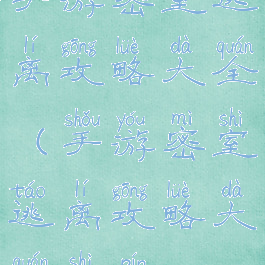 手游密室逃
lí gōng lüè dà quán
离攻略大全
shǒu yóu mì shì
（手游密室
táo lí gōng lüè dà
逃离攻略大
quán shì pín